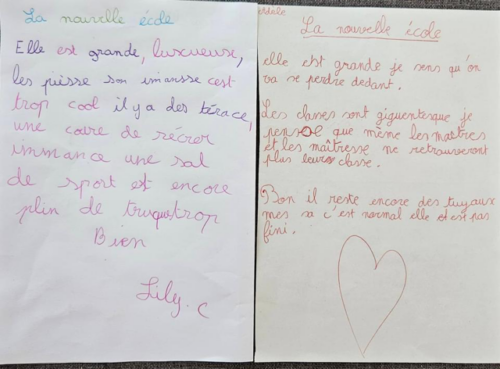 La nouvelle école
Elle est grande, luxueuse,
les piesse son imansse cest
trop cool il y a des térace,
une coure de récrer
immance une sal
de sport et encore
plin de truque trop
Bien
Lily. C
La nouvelle école
elle est grande je sens qu'on
va se perdre dedant.
Les classes sont giguentesque je
pense que même les maîtres
et les maîtresse ne retrouveront
plus leur classe.
Bon il reste encore des tuyaux
mes sa c'est normal elle est pas
fini.